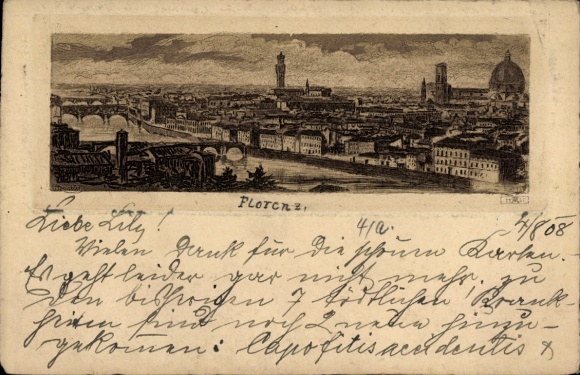 Florenz.
Liebe Lily! 4/8. 4/8 08
Vielen Dank für die schönen Karten.
Es geht leider gar nicht mehr, zu
den bisherigen 7 tödtlichen Krank-
heiten sind noch 2 neue hinzu-
gekommen: Capofitis accidentis &